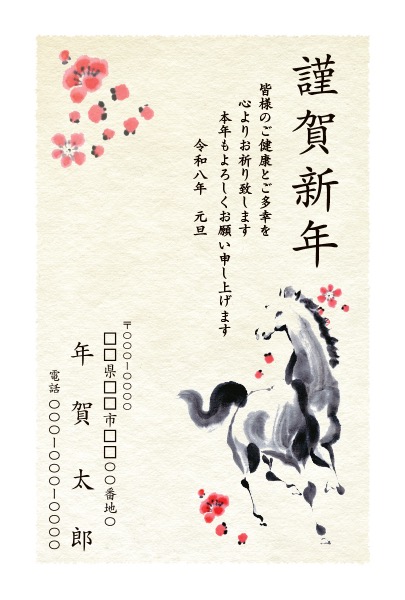 謹賀新年
皆様のご健康とご多幸を
心よりお祈り致します
本年もよろしくお願い申し上げます
令和八年　元旦
〒〇〇〇-〇〇〇〇
□□県□□市□□〇〇番地〇
年賀太郎
電話 〇〇〇-〇〇〇-〇〇〇〇